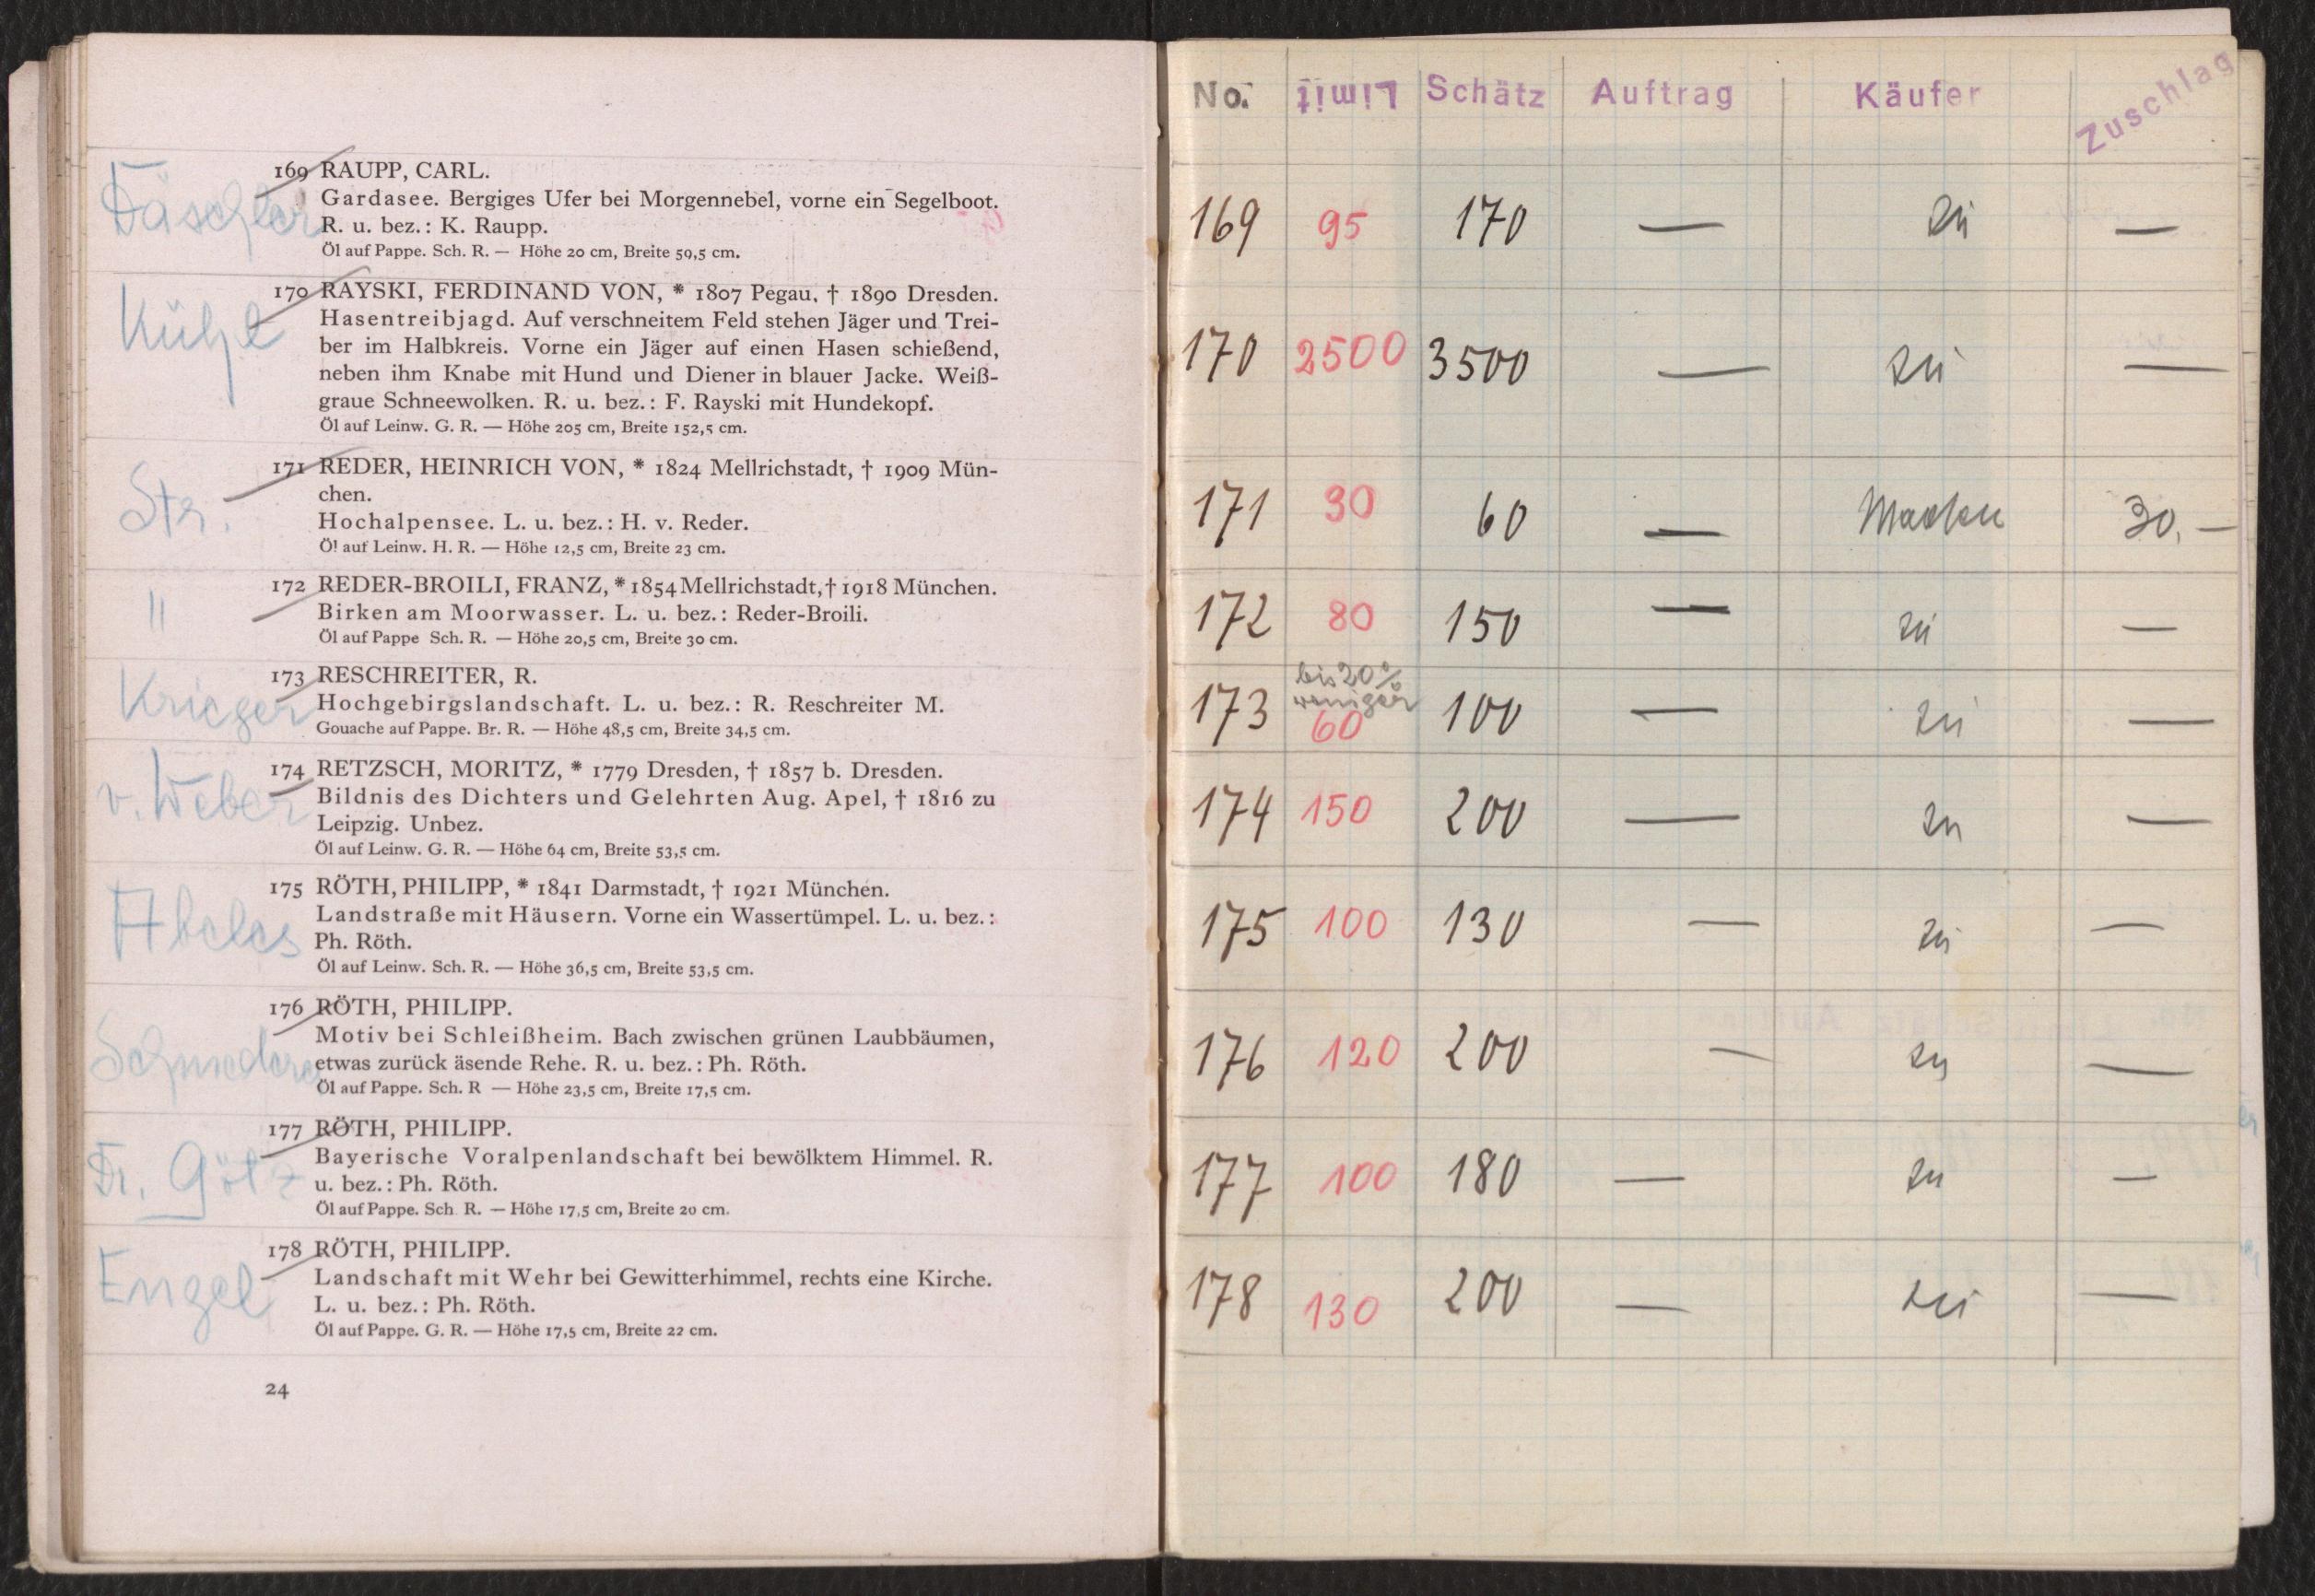 Däschler
169 RAUPP, CARL.
Gardasee. Bergiges Ufer bei Morgennebel, vorne ein Segelboot.
R. u. bez.: K. Raupp.
Öl auf Pappe. Sch. R. — Höhe 20 cm, Breite 59,5 cm.
Kühl
170 RAYSKI, FERDINAND VON, * 1807 Pegau, † 1890 Dresden.
Hasentreibjagd. Auf verschneitem Feld stehen Jäger und Trei-
ber im Halbkreis. Vorne ein Jäger auf einen Hasen schießend,
neben ihm Knabe mit Hund und Diener in blauer Jacke. Weiß-
graue Schneewolken. R. u. bez.: F. Rayski mit Hundekopf.
Öl auf Leinw. G. R. — Höhe 205 cm, Breite 152,5 cm.
Str.
171 REDER, HEINRICH VON, * 1824 Mellrichstadt, † 1909 Mün-
chen.
Hochalpensee. L. u. bez.: H. v. Reder.
Öl auf Leinw. H. R. — Höhe 12,5 cm, Breite 23 cm.
"
172 REDER-BROILI, FRANZ, * 1854 Mellrichstadt, † 1918 München.
Birken am Moorwasser. L. u. bez.: Reder-Broili.
Öl auf Pappe Sch. R. — Höhe 20,5 cm, Breite 30 cm.
Krieger
173 RESCHREITER, R.
Hochgebirgslandschaft. L. u. bez.: R. Reschreiter M.
Gouache auf Pappe. Br. R. — Höhe 48,5 cm, Breite 34,5 cm.
v. Weber
174 RETZSCH, MORITZ, * 1779 Dresden, † 1857 b. Dresden.
Bildnis des Dichters und Gelehrten Aug. Apel, † 1816 zu
Leipzig. Unbez.
Öl auf Leinw. G. R. — Höhe 64 cm, Breite 53,5 cm.
Abeles
175 RÖTH, PHILIPP, * 1841 Darmstadt, † 1921 München.
Landstraße mit Häusern. Vorne ein Wassertümpel. L. u. bez.:
Ph. Röth.
Öl auf Leinw. Sch. R. — Höhe 36,5 cm, Breite 53,5 cm.
176 RÖTH, PHILIPP.
Motiv bei Schleißheim. Bach zwischen grünen Laubbäumen,
etwas zurück äsende Rehe. R. u. bez.: Ph. Röth.
Öl auf Pappe. Sch. R — Höhe 23,5 cm, Breite 17,5 cm.
Dr. Götz
177 RÖTH, PHILIPP.
Bayerische Voralpenlandschaft bei bewölktem Himmel. R.
u. bez.: Ph. Röth.
Öl auf Pappe. Sch. R. — Höhe 17,5 cm, Breite 20 cm.
Engel
178 RÖTH, PHILIPP.
Landschaft mit Wehr bei Gewitterhimmel, rechts eine Kirche.
L. u. bez.: Ph. Röth.
Öl auf Pappe. G. R. — Höhe 17,5 cm, Breite 22 cm.
24
No. Limit Schätz Auftrag Käufer Zuschlag
169 95 170 — zü —
170 2500 3500 — zü —
171 30 60 — 30.—
172 80 150 — zü —
bis 20%
weniger
173 60 100 — zü —
174 150 200 — zü —
175 100 130 — zü —
176 120 200 — zü —
177 100 180 — zü —
178 130 200 — zü —